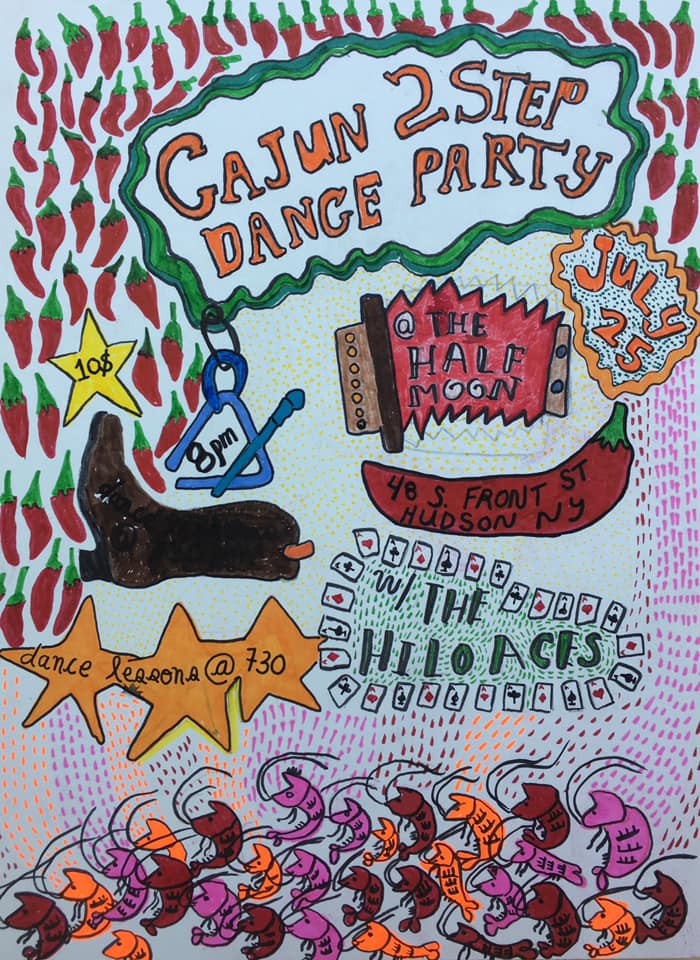 CAJUN 2STEP
DANCE PARTY
JULY
25
@ THE
HALF
MOON
10$
8pm
48 S. FRONT ST
HUDSON NY
W/ THE
HILO ACES
dance lessons @ 730